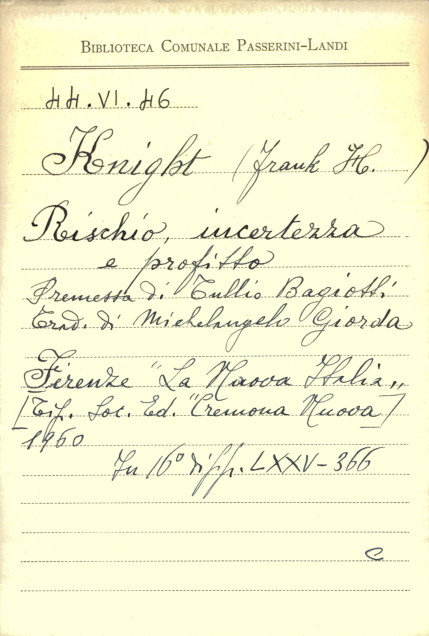 BIBLIOTECA COMUNALE PASSERINI-LANDI
44.VI.46
Knight (Frank H. )
Rischio, incertezza
e profitto
Premessa di Tullio Bagiotti
Trad. di Michelangelo Giorda
Firenze "La Nuova Italia„
[Tip. Soc. Ed. "Cremona Nuova]
1960
In 16° di pp. LXXV-366
C